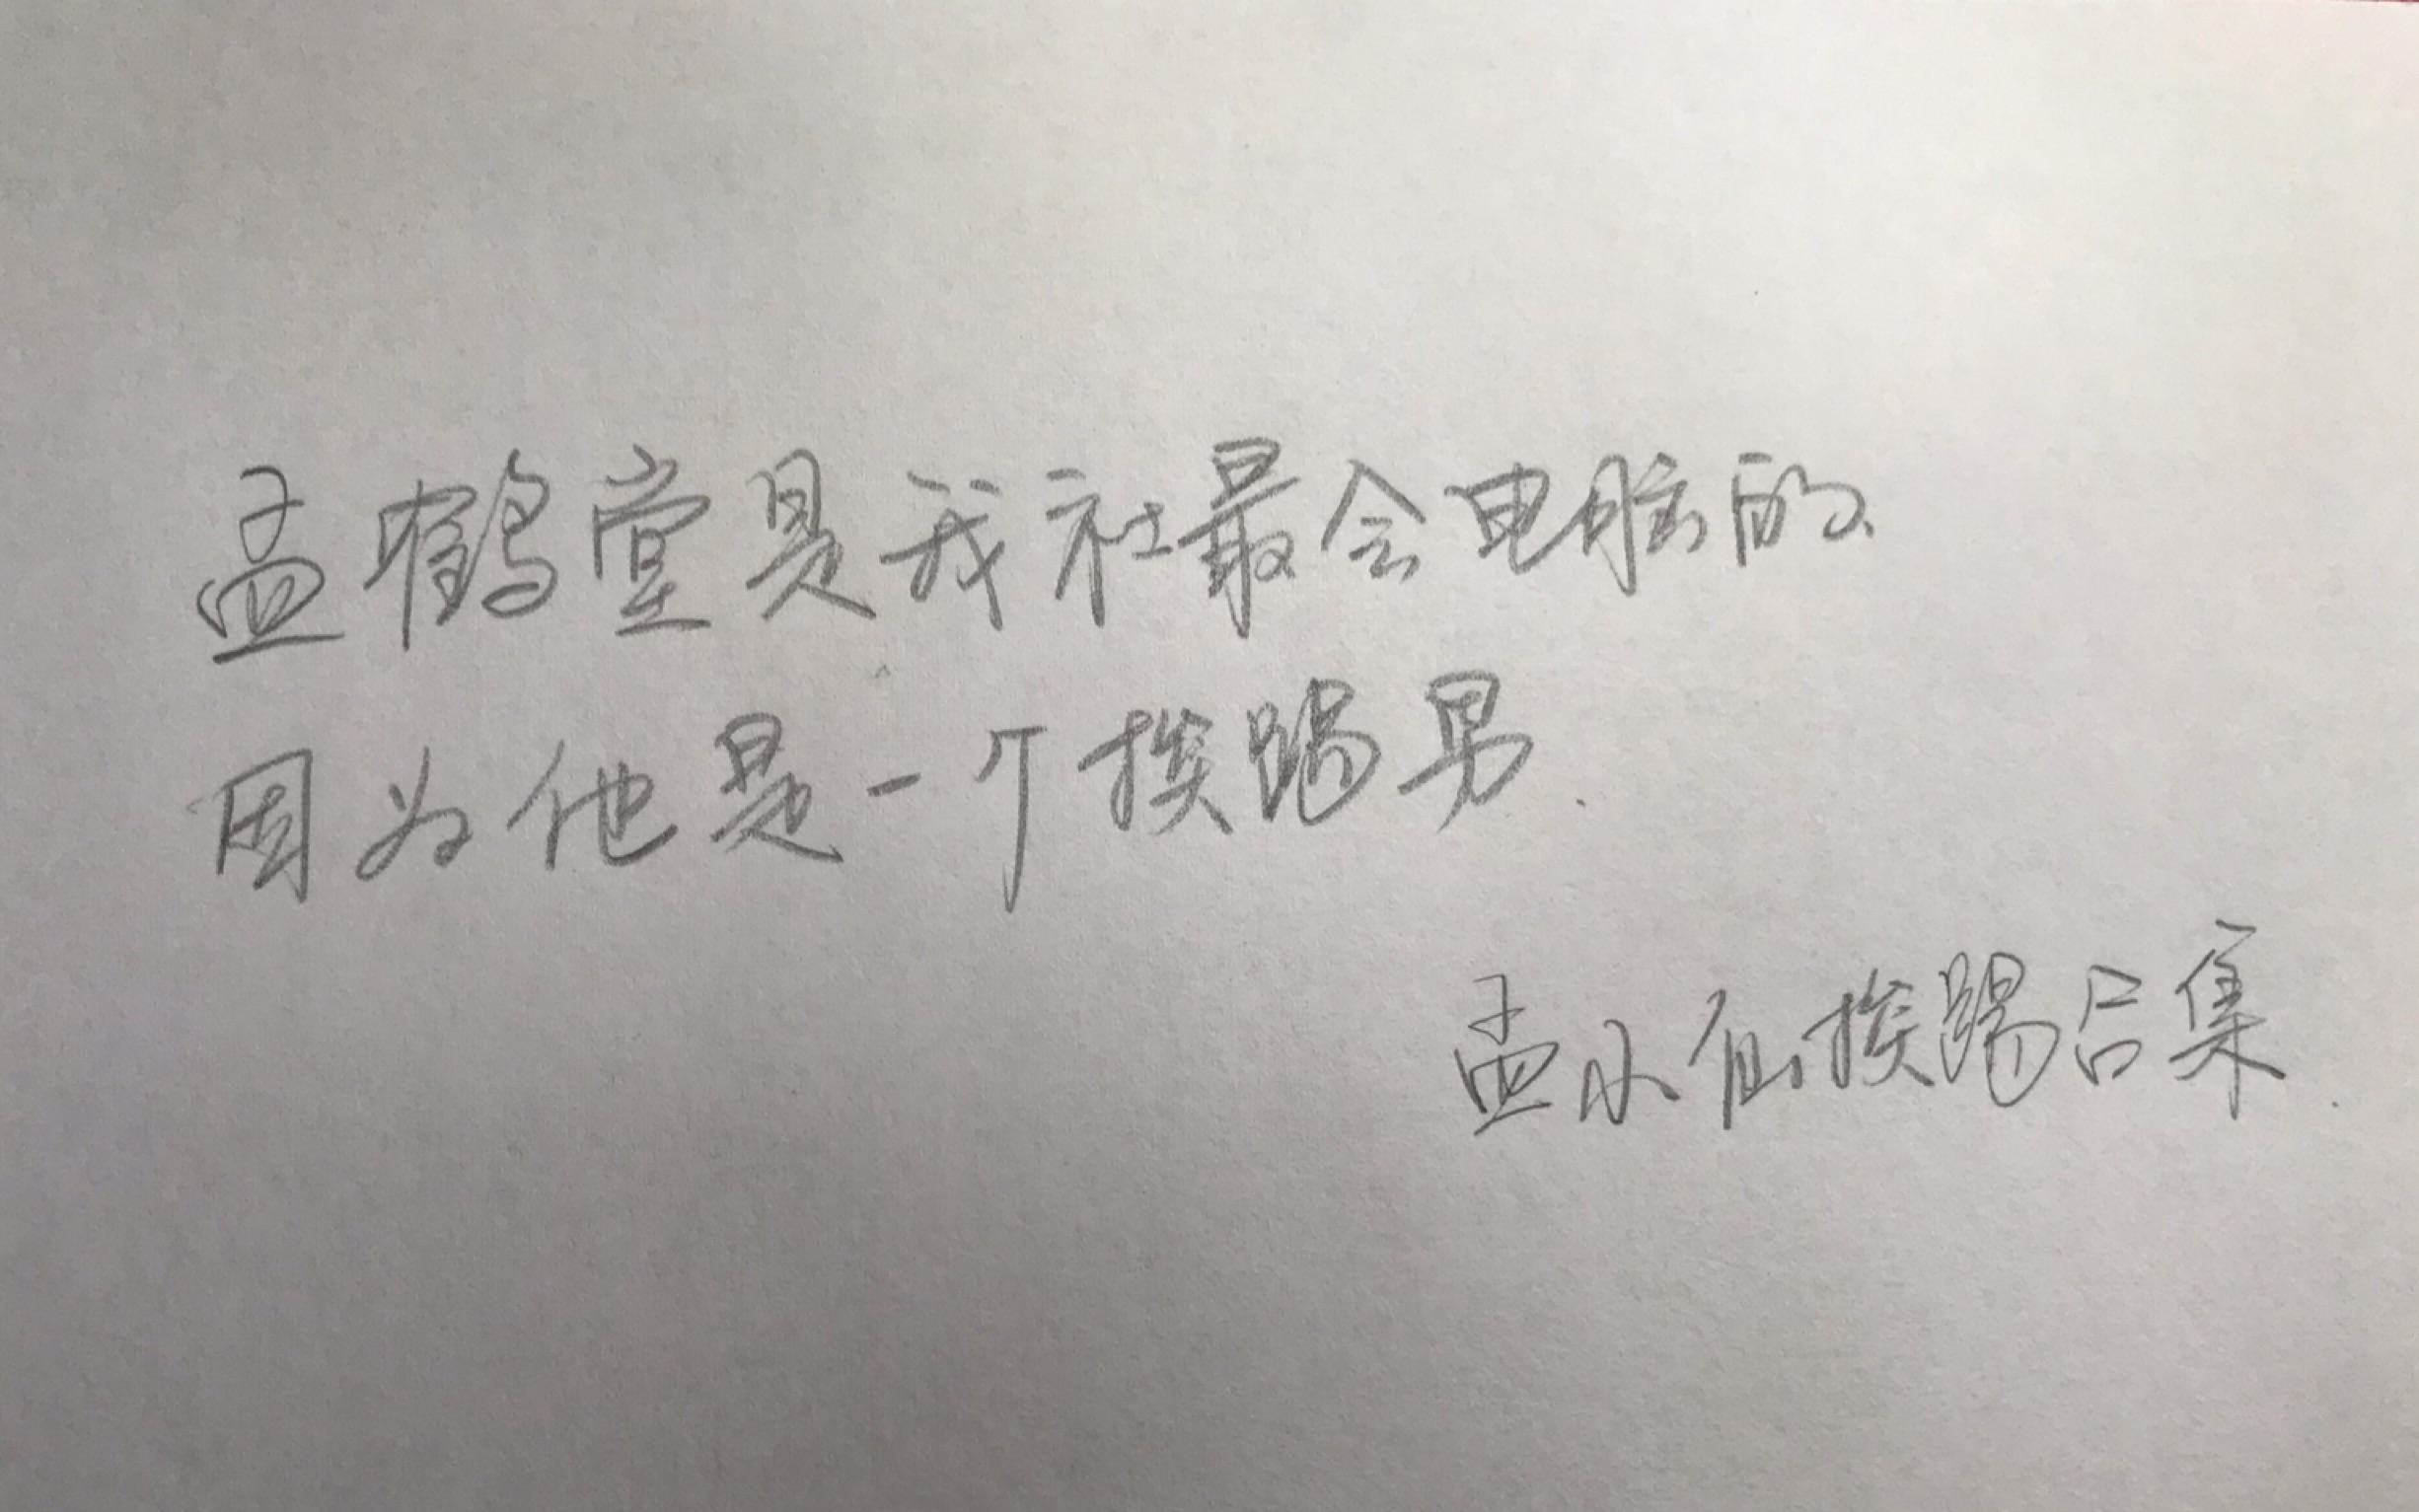 孟鹤堂是我社最会电脑的
因为他是一个挨踢男.
孟小仙挨踢合集.